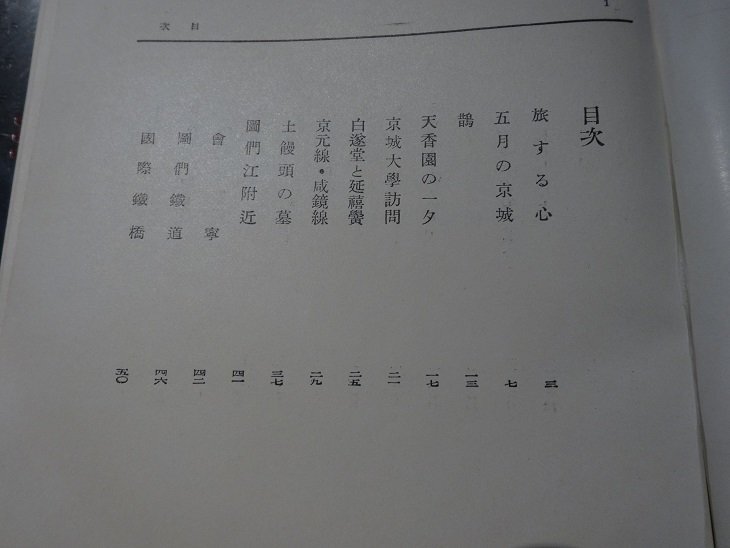 目次
1
目次
旅する心 三
五月の京城 七
鵲 一三
天香園の一夕 一七
京城大學訪問 二一
白遂堂と延禧黌 二五
京元線・咸鏡線 二九
土饅頭の墓 三七
圖們江附近 四一
會寧 四二
圖們鐵道 四六
國際鐵橋 五〇